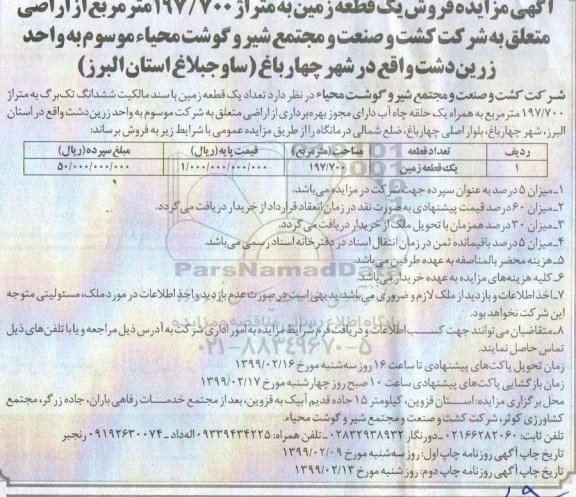 آگهی مزایده فروش یک قطعه زمین به متراژ ۱۹۷/۷۰۰ متر مربع از اراضی
متعلق به شرکت کشت و صنعت و مجتمع شیر و گوشت محیاء موسوم به واحد
زرین دشت واقع در شهر چهارباغ (ساوجبلاغ استان البرز)
شرکت کشت و صنعت و مجتمع شیر و گوشت محیاء در نظر دارد تعداد یک قطعه زمین با سند مالکیت ششدانگ تک‌برگ به متراژ
۱۹۷/۷۰۰ متر مربع به همراه یک حلقه چاه آب دارای مجوز بهره‌برداری از اراضی متعلق به شرکت موسوم به واحد زرین دشت واقع در استان
البرز، شهر چهارباغ، بلوار اصلی چهارباغ، ضلع شمالی درمانگاه را از طریق مزایده عمومی با شرایط زیر به فروش برساند:
ردیف تعداد قطعه مساحت (متر مربع) قیمت پایه (ریال) مبلغ سپرده (ریال)
۱ یک قطعه زمین ۱۹۷/۷۰۰ ۱/۰۰۰/۰۰۰/۰۰۰/۰۰۰ ۵۰/۰۰۰/۰۰۰/۰۰۰
۱ـ میزان ۵ درصد به عنوان سپرده جهت شرکت در مزایده می‌باشد.
۲ـ میزان ۶۰ درصد قیمت پیشنهادی به صورت نقد در زمان انعقاد قرارداد از خریدار دریافت می‌گردد.
۳ـ میزان ۳۰ درصد همزمان با تحویل ملک از خریدار دریافت می‌گردد.
۴ـ میزان ۵ درصد باقیمانده ثمن در زمان انتقال اسناد در دفترخانه اسناد رسمی می‌باشد.
۵ـ هزینه محضر بالمناصفه به عهده طرفین می‌باشد.
۶ـ کلیه هزینه‌های مزایده به عهده خریدار می‌باشد.
ParsNamadData
۷ـ اخذ اطلاعات و بازدید از ملک لازم و ضروری می‌باشد. بدیهی است در صورت عدم بازدید و اخذ اطلاعات در مورد ملک، مسئولیتی متوجه
این شرکت نخواهد بود.
پایگاه اطلاع رسانی مناقصه و مزایده
۸ـ متقاضیان می‌توانند جهت کسب اطلاعات و دریافت فرم شرایط مزایده به امور اداری شرکت به آدرس ذیل مراجعه و یا با تلفن‌های ذیل
تماس حاصل نمایند.
۰۲۱-۸۸۳۴۹۶۷۰-۵
زمان تحویل پاکت‌های پیشنهادی تا ساعت ۱۶ روز سه‌شنبه مورخ ۱۳۹۹/۰۲/۱۶
زمان بازگشایی پاکت‌های پیشنهادی ساعت ۱۰ صبح روز چهارشنبه مورخ ۱۳۹۹/۰۲/۱۷
محل برگزاری مزایده: استان قزوین، کیلومتر ۱۵ جاده قدیم آبیک به قزوین، بعد از مجتمع خدمات رفاهی باران، جاده زرگر، مجتمع
کشاورزی کوثر، شرکت کشت و صنعت و مجتمع شیر و گوشت محیاء.
تلفن ثابت: ۰۲۱۶۶۲۸۲۰۶۰ ـ دورنگار ۰۲۸۳۲۹۳۸۹۳۲ ـ تلفن همراه: ۰۹۳۳۹۴۳۴۲۲۵ اله‌داد ـ ۰۹۱۹۲۶۳۰۰۷۴ رنجبر
تاریخ چاپ آگهی روزنامه چاپ اول: روز سه‌شنبه مورخ ۱۳۹۹/۰۲/۰۹
تاریخ چاپ آگهی روزنامه چاپ دوم: روز شنبه مورخ ۱۳۹۹/۰۲/۱۳